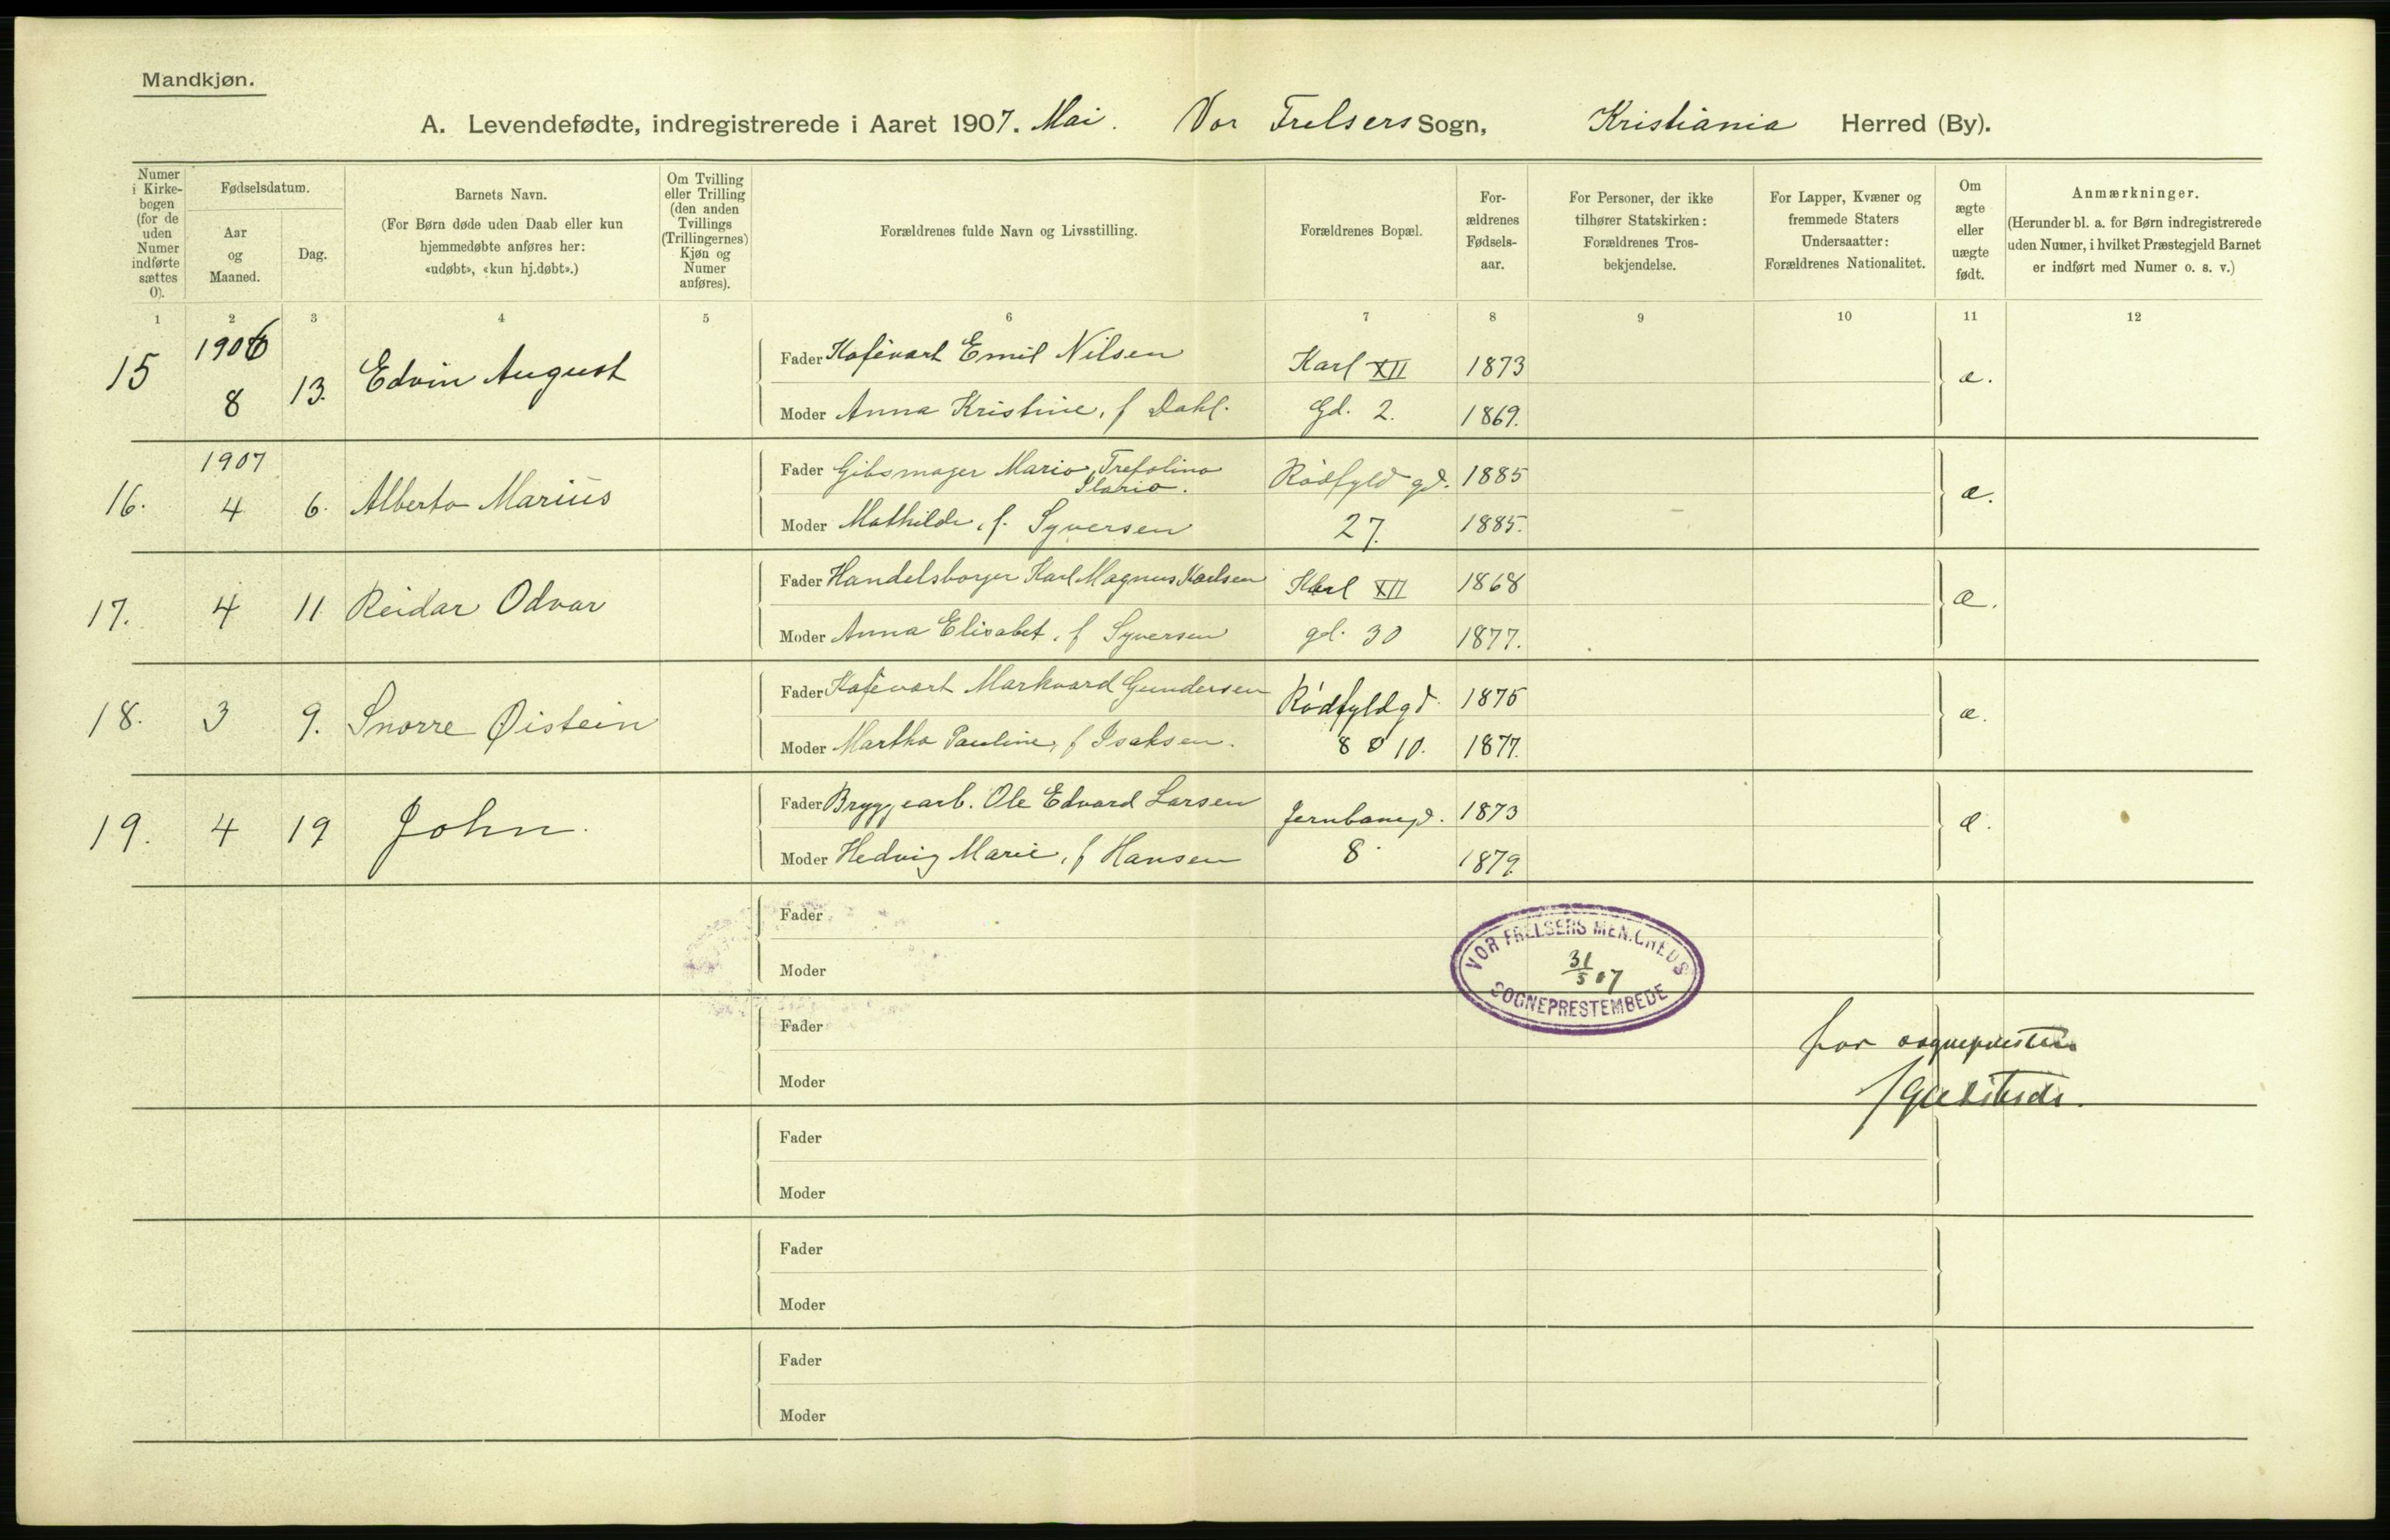 Mandkjøn.
A. Levendefødte, indregistrerede i Aaret 1907. Mai. Vor Frelsers Sogn, Kristiania Herred (By).
Numer i Kirkebogen (for de uden Numer indførte sættes 0).
Fødselsdatum.
Aar og Maaned.
Dag.
Barnets Navn.
(For Børn døde uden Daab eller kun hjemmedøbte anføres her: «udøbt», «kun hj.døbt».)
Om Tvilling eller Trilling (den anden Tvillings (Trillingernes) Kjøn og Numer anføres).
Forældrenes fulde Navn og Livsstilling.
Forældrenes Bopæl.
Forældrenes Fødselsaar.
For Personer, der ikke tilhører Statskirken: Forældrenes Trosbekjendelse.
For Lapper, Kvæner og fremmede Staters Undersaatter: Forældrenes Nationalitet.
Om ægte eller uægte født.
Anmærkninger.
(Herunder bl. a. for Børn indregistrerede uden Numer, i hvilket Præstegjeld Barnet er indført med Numer o. s. v.)
1 2 3 4 5 6 7 8 9 10 11 12
15 1906 8 13. Edvin August
Fader Kafévært Emil Nilsen Karl XII 1873 æ.
Moder Anna Kristine, f Dahl. Gd. 2. 1869.
16. 1907 4 6. Alberto Marius
Fader Gibsmager Mario Trefolino Ilario. Rødfyld gd. 1885 æ.
Moder Mathilde, f. Syversen 27. 1885.
17. 4 11 Reidar Odvar
Fader Handelsborger Karl Magnus Karlsen Karl XII 1868 æ.
Moder Anna Elisabet, f Syversen gd. 30 1877.
18. 3 9. Snorre Øistein
Fader Kafévært Markvard Gundersen Rødfyldgd. 1875 æ.
Moder Martha Pauline, f Isaksen. 8 & 10. 1877.
19. 4 19 John.
Fader Bryggearb. Ole Edvard Larsen Jernbanegd. 1873 æ.
Moder Hedvig Marie, f Hansen 8. 1879.
Fader
Moder
VOR FRELSERS MENIGHEDS
31/5 07
SOGNEPRESTEMBEDE
Fader
for sognepresten
Moder
Fader
Moder
Fader
Moder
Fader
Moder